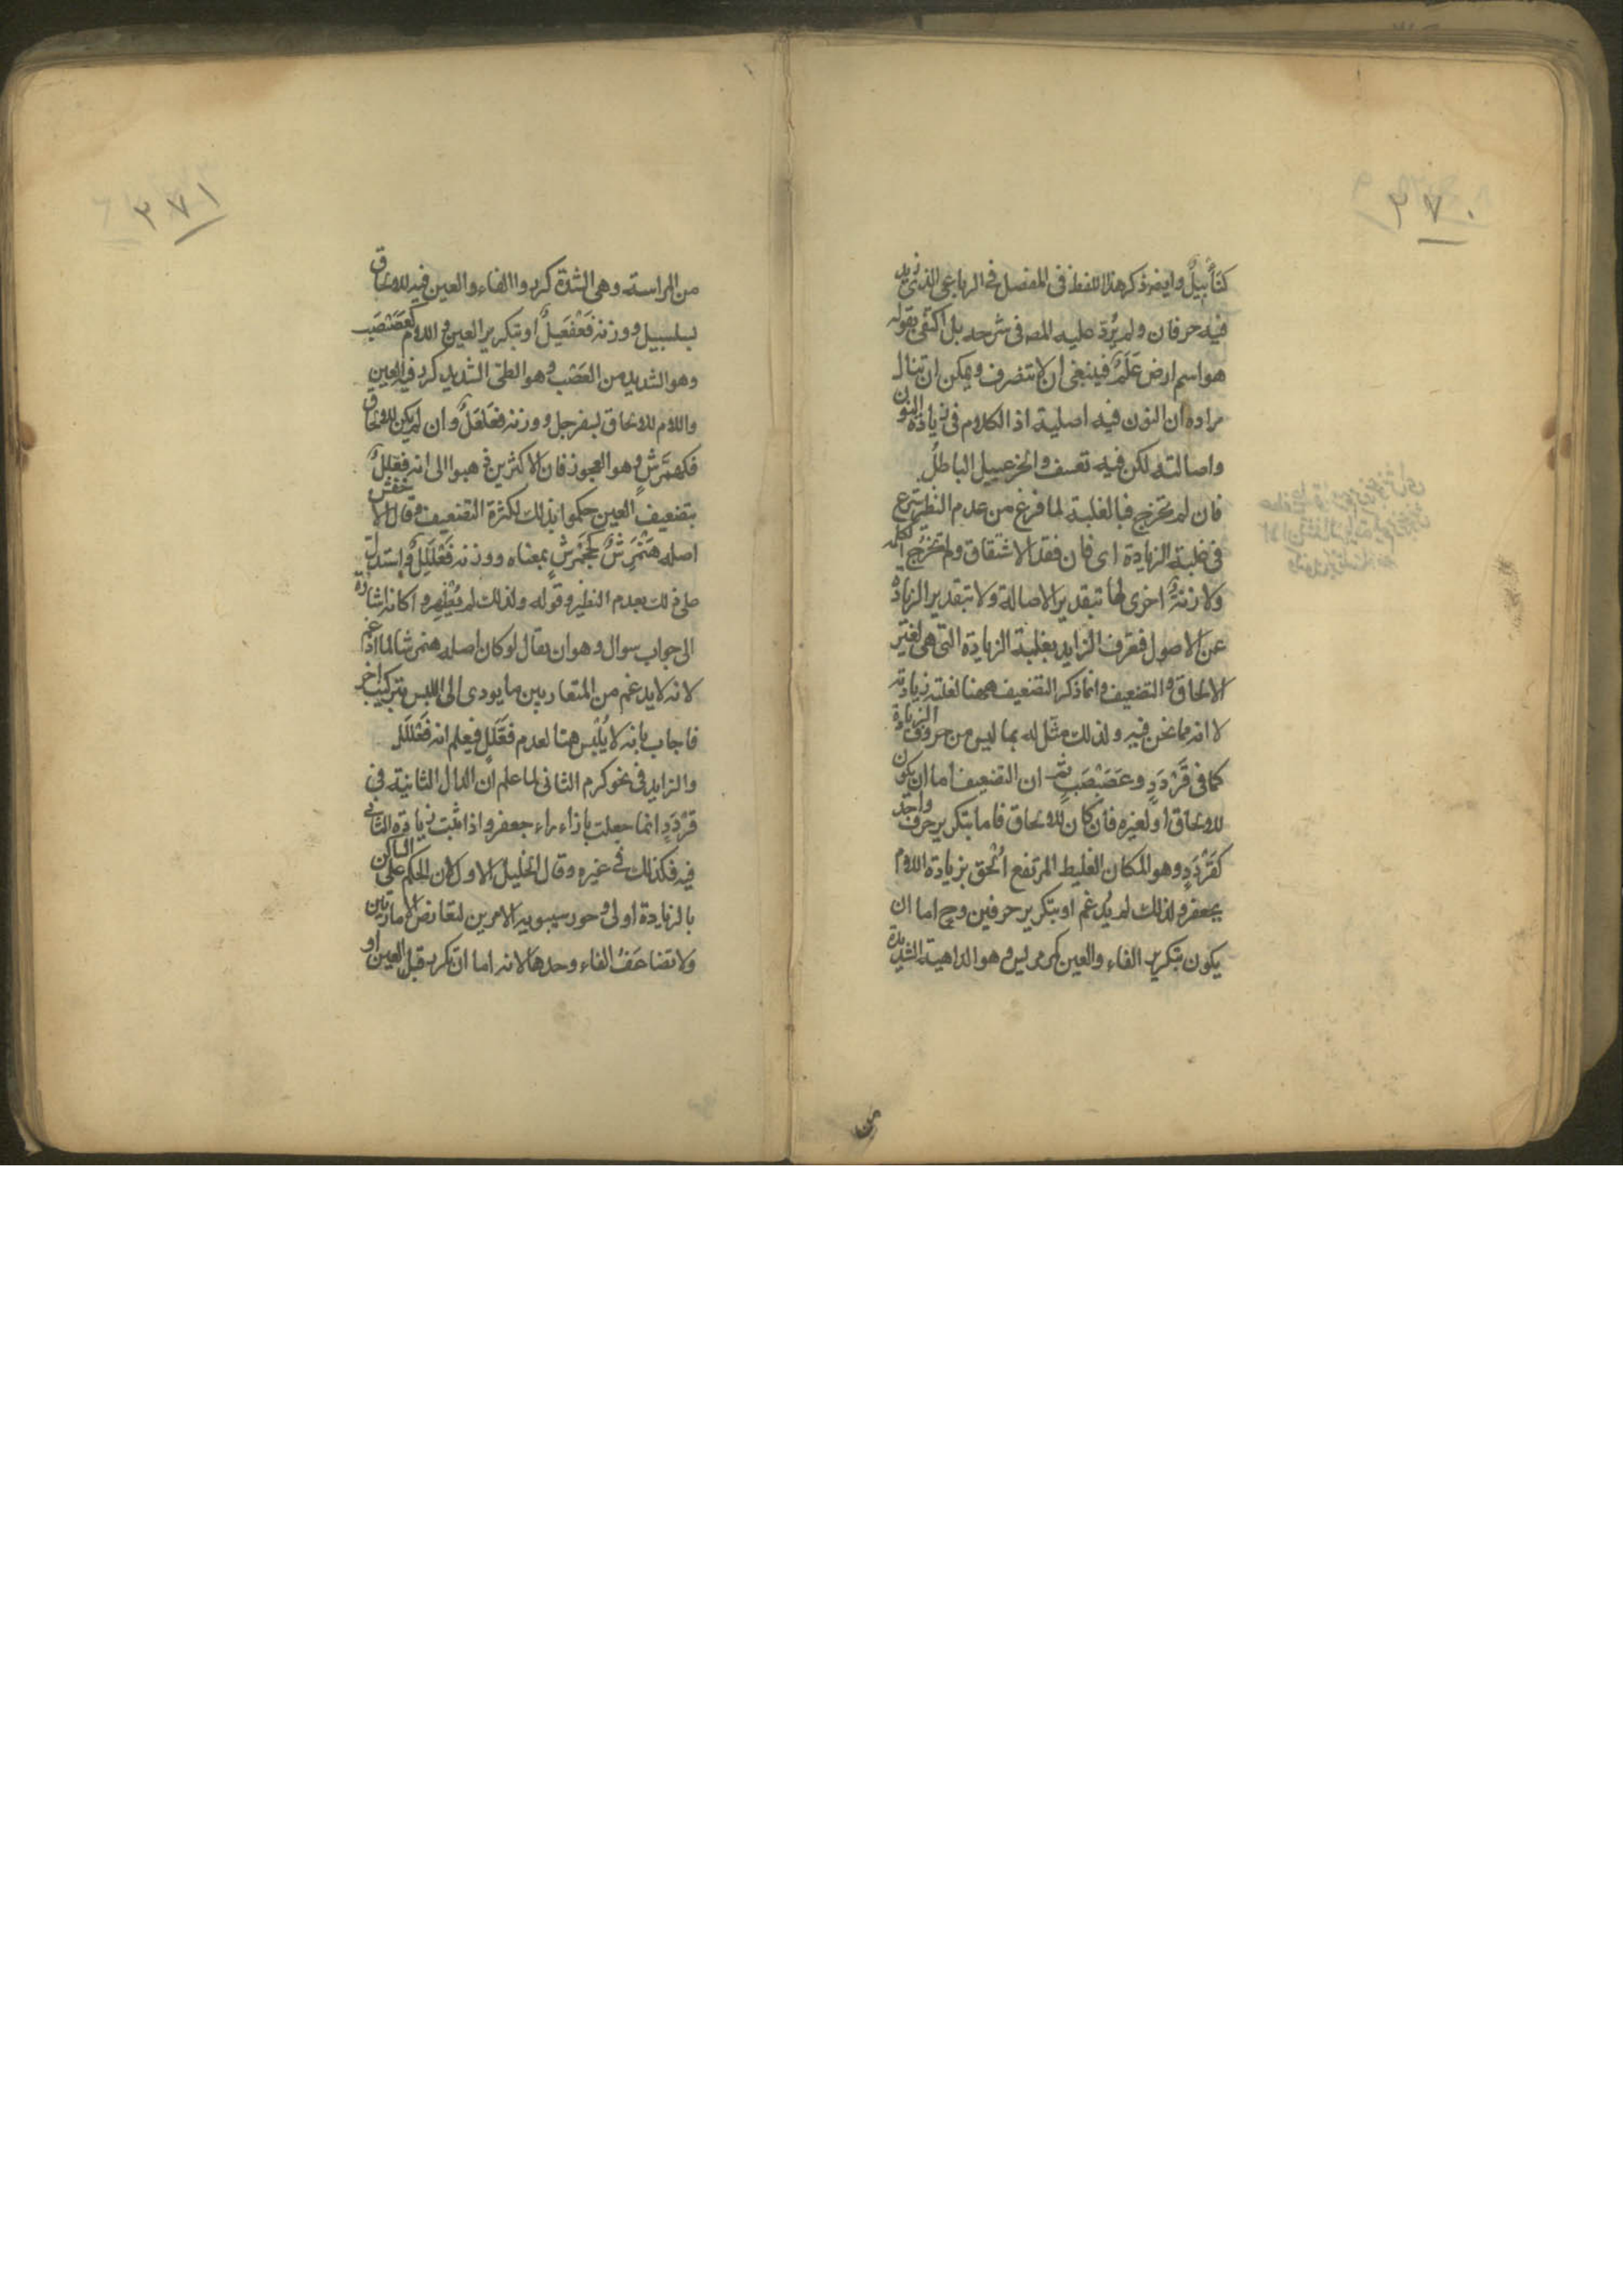 ٣٧٠
كنأبيلٌ وايضه ذكر هذا اللفظ فى المفصل فى الرباعى الذى زيد
فيه حرفان ولم يُرَدّ عليه المصه فى شرحه بل اكتفى بقوله
هو اسم ارض عَلَمٌ فينبغى ان لا يتصرف ويمكن ان يقال
مراده ان النون فيه اصلية اذ الكلام فى زيادة النون
واصالته لكن فيه تعسف والخزعبيل الباطلُ
فان لم تخرج فبالغلبة لما فرغ من عدم النظير شرع
فى غلبة الزيادة اى فان فقد الاشتقاق ولم تخرُج الكلمه
ولا زِنَةٌ اخرى لها بتقدير الاصالة ولا بتقدير الزيادة
عن الاصول فعُرف الزايد بغلبة الزيادة التى هى لغير
الالحاق والتضعيف وانما ذكر التضعيف ههنا لغلبة زيادته
لا انه مما نحن فيه ولذلك مثّل له بما ليس من حروف الزيادة
كما فى قَرْدَدٍ وعَصَبْصَبٍ ثم ان التضعيف اما ان يكون
للالحاق او لغيره فان كان للالحاق فاما بتكرير حرف واحد
كقَرْدَدٍ وهو المكان الغليط المرتفع اُلْحِق بزيادة اللام
بجعفر ولذلك لم يُدغم او بتكرير حرفين وح اما ان
يكون بتكرير الفاء والعين كمرمريس وهو الداهية الشديدة
من
٣٧١
من المراسة وهى الشدة كرروا الفاء والعين فيه للالحاق
بسلسبيل ووزنه فَعْفَعِيلٌ او بتكرير العين واللام كعَصَبْصَبٍ
وهو الشديد من العَصْب وهو الطى الشديد كرر فيه العين
واللام للالحاق بسفرجل ووزنه فعَلْعَلٌ وان لم يكن للالحاق
فكهمَّرِشٍ وهو العجوز فان الاكثرين ذهبوا الى انه فعَّلِلٌ
بتضعيف العين حكموا بذلك لكثرة التضعيف وقال الاخفش
اصله هَنْمَرِشٌ كجَحْمَرِشٍ بمعناه ووزنه فَعْلَلِلٌ واستدل
على ذلك بعدم النظير وقوله ولذلك لم يُظْهِروا كانه اشارة
الى جواب سوال وهو ان يقال لو كان اصله هنمرشا لما ادغم
لانه لا يدغم من المتقاربين ما يودى الى اللبس بتركيب اخر
فاجاب بانه لا يُلْبس هنا لعدم فعَّلِلٍ فيعلم انه فَعْلَلِل
والزايد فى نحو كرم الثانى لما علم ان الدال الثانية فى
قَرْدَدٍ انما جعلت بازاء راء جعفر واذا ثبت زيادة الثانى
فيه فكذلك فى غيره وقال الخليل الاول لان الحكم على الساكن
بالزيادة اولى وجوز سيبويه الامرين لتعارض الامارتين
ولا تضاعَفُ الفاء وحدها لانه اما ان تكرر قبل العين او